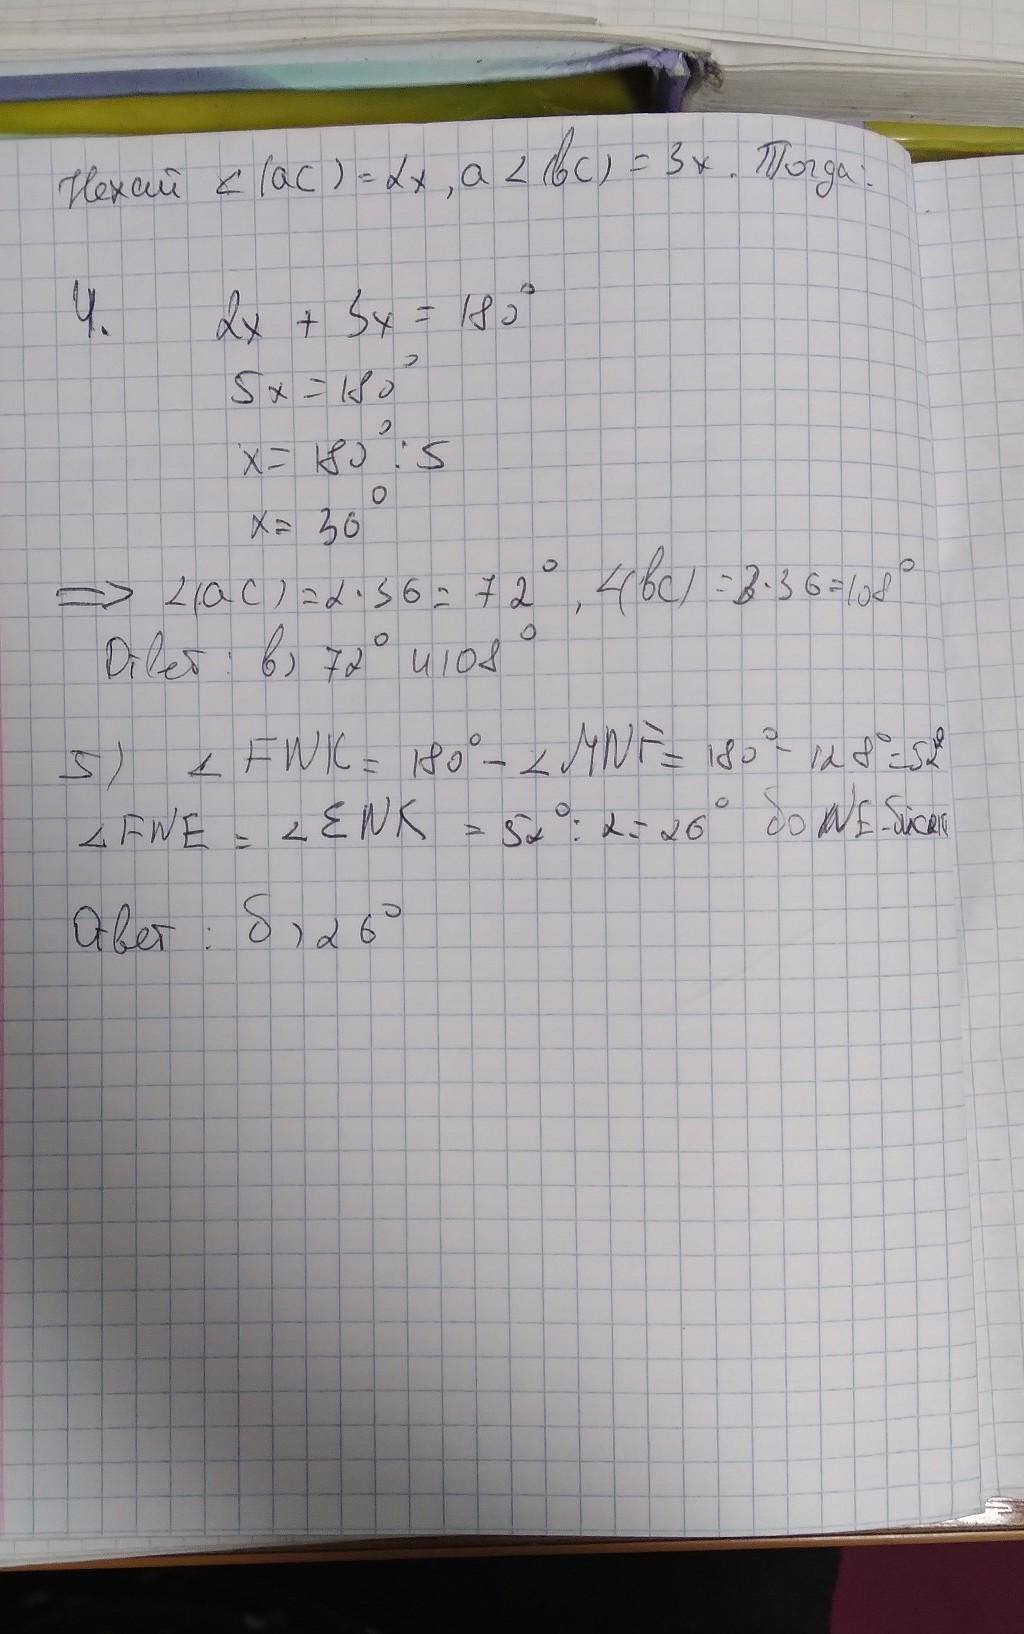 Нехай ∠(ac) = 2x, а ∠(bc) = 3x. Тогда:
4. 2x + 3x = 180°
5x = 180°
x = 180° : 5
x = 36°
=> ∠(ac) = 2·36 = 72°, ∠(bc) = 3·36 = 108°
Ответ: в) 72° и 108°
5) ∠FNK = 180° - ∠MNF = 180° - 128° = 52°
∠FNE = ∠ENK = 52° : 2 = 26° бо NE-бісек
Ответ: б) 26°